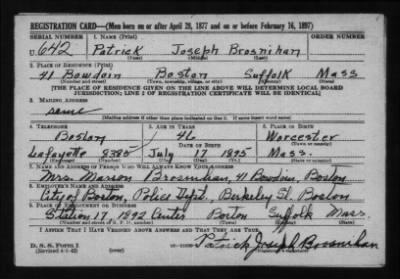 REGISTRATION CARD—(Men born on or after April 28, 1877 and on or before February 16, 1897)
SERIAL NUMBER 1. NAME (Print) ORDER NUMBER
U 642 Patrick Joseph Brosnihan
(First) (Middle) (Last)
2. PLACE OF RESIDENCE (Print)
41 Bowdoin Boston Suffolk Mass
(Number and street) (Town, township, village, or city) (County) (State)
[THE PLACE OF RESIDENCE GIVEN ON THE LINE ABOVE WILL DETERMINE LOCAL BOARD
JURISDICTION; LINE 2 OF REGISTRATION CERTIFICATE WILL BE IDENTICAL]
3. MAILING ADDRESS
same
[Mailing address if other than place indicated on line 2. If same insert word same]
4. TELEPHONE 5. AGE IN YEARS 6. PLACE OF BIRTH
Boston 46 Worcester
DATE OF BIRTH
Lafayette 8385 July 17 1895 Mass.
7. NAME AND ADDRESS OF PERSON WHO WILL ALWAYS KNOW YOUR ADDRESS
Mrs. Marion Brosnihan, 41 Bowdoin, Boston
8. EMPLOYER'S NAME AND ADDRESS
City of Boston, Police Dept., Berkeley St. Boston
9. PLACE OF EMPLOYMENT OR BUSINESS
Station 17 1892 Center Boston Suffolk Mass.
I AFFIRM THAT I HAVE VERIFIED ABOVE ANSWERS AND THAT THEY ARE TRUE.
D. S. S. Form 1
(Revised 4-1-42)
Patrick Joseph Brosnihan